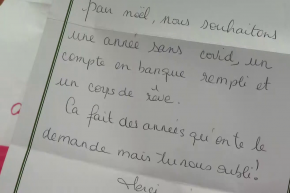 papa noël, nous souhaitons
une année sans covid, un
compte en banque rempli et
un corps de rêve.
Ca fait des années qu'on te le
demande mais tu nous oubli!
Merci